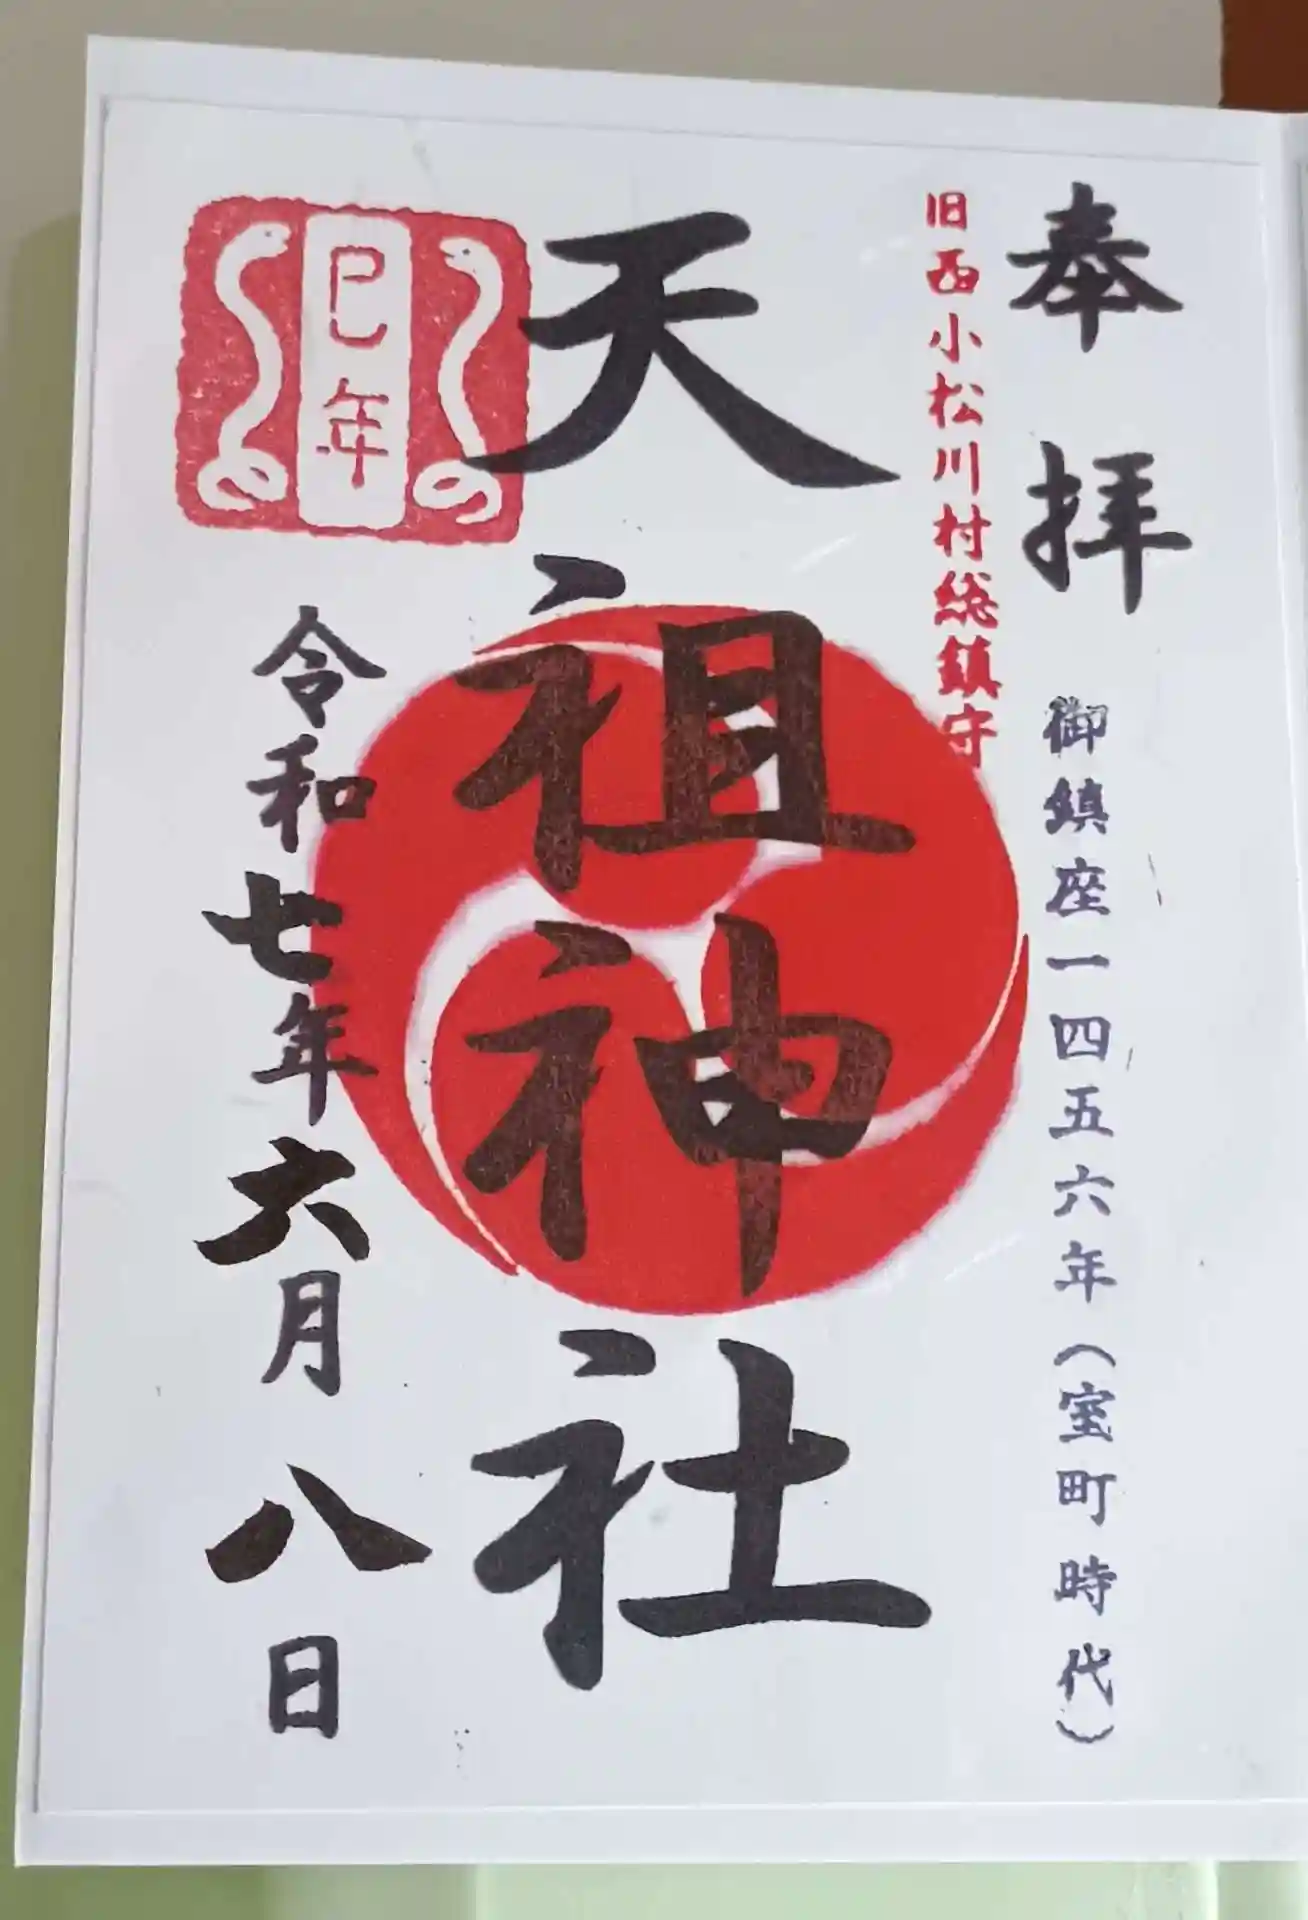 奉拝
御鎮座一四五六年（室町時代）
旧西小松川村総鎮守
天祖神社
巳年
令和七年六月八日